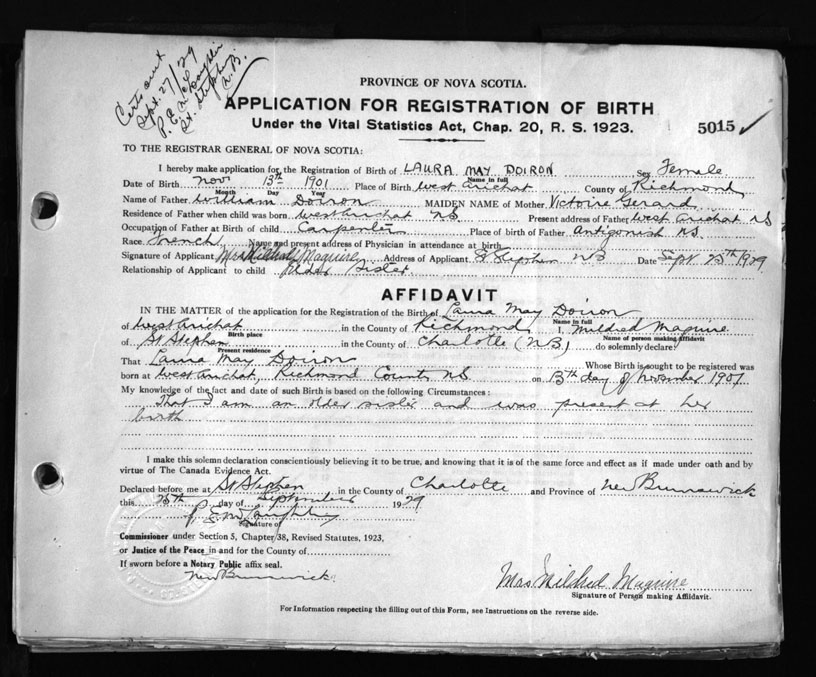 Certs out
Sept. 27/29
P. E. McLaughlin
St. Stephen
N.B.
PROVINCE OF NOVA SCOTIA.
APPLICATION FOR REGISTRATION OF BIRTH
Under the Vital Statistics Act, Chap. 20, R. S. 1923.
5015
TO THE REGISTRAR GENERAL OF NOVA SCOTIA:
I hereby make application for the Registration of Birth of LAURA MAY DOIRON Sex Female
Name in full
Date of Birth Nov 13th 1901 Place of Birth West Arichat County of Richmond
Month Day Year
Name of Father William Doiron MAIDEN NAME of Mother Victoire Gerard
Residence of Father when child was born West Arichat NS Present address of Father West Arichat NS
Occupation of Father at Birth of child Carpenter Place of birth of Father Antigonish NS.
Race French Name and present address of Physician in attendance at birth
Signature of Applicant Mrs Mildred Maguire Address of Applicant St Stephen NB Date Sept 25th 1929
Relationship of Applicant to child Older Sister
AFFIDAVIT
IN THE MATTER of the application for the Registration of the Birth of Laura May Doiron
Name in full
of West Arichat in the County of Richmond I, Mildred Maguire
Birth place Name of person making Affidavit
of St Stephen in the County of Charlotte (NB) do solemnly declare:
Present residence
That Laura May Doiron Whose Birth is sought to be registered was
born at West Arichat, Richmond County NS on 13th day of November 1901
My knowledge of the fact and date of such Birth is based on the following Circumstances:
That I am an older sister and was present at her
birth
I make this solemn declaration conscientiously believing it to be true, and knowing that it is of the same force and effect as if made under oath and by
virtue of The Canada Evidence Act.
Declared before me at St Stephen in the County of Charlotte and Province of New Brunswick
this 25th day of September 1929
P. E. McLaughlin
Signature of
Commissioner under Section 5, Chapter 38, Revised Statutes, 1923,
or Justice of the Peace in and for the County of
If sworn before a Notary Public affix seal.
New Brunswick
Mrs Mildred Maguire
Signature of Person making Affidavit.
For Information respecting the filling out of this Form, see Instructions on the reverse side.